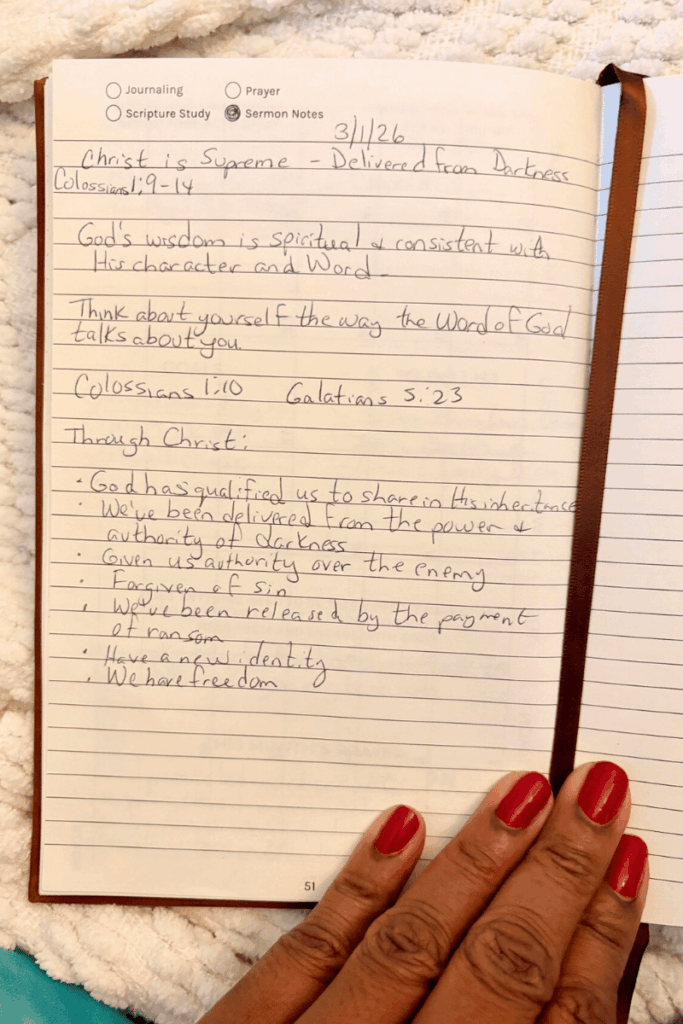 Journaling Prayer
Scripture Study Sermon Notes
3/1/26
Christ is Supreme - Delivered from Darkness
Colossians 1:9-14
God's wisdom is spiritual & consistent with
His character and Word
Think about yourself the way the Word of God
talks about you.
Colossians 1:10 Galatians 5:23
Through Christ:
· God has qualified us to share in His inheritance
· We've been delivered from the power &
authority of darkness
· Given us authority over the enemy
· Forgiven of sin
· We've been released by the payment
of ransom
· Have a new identity
· We have freedom
51